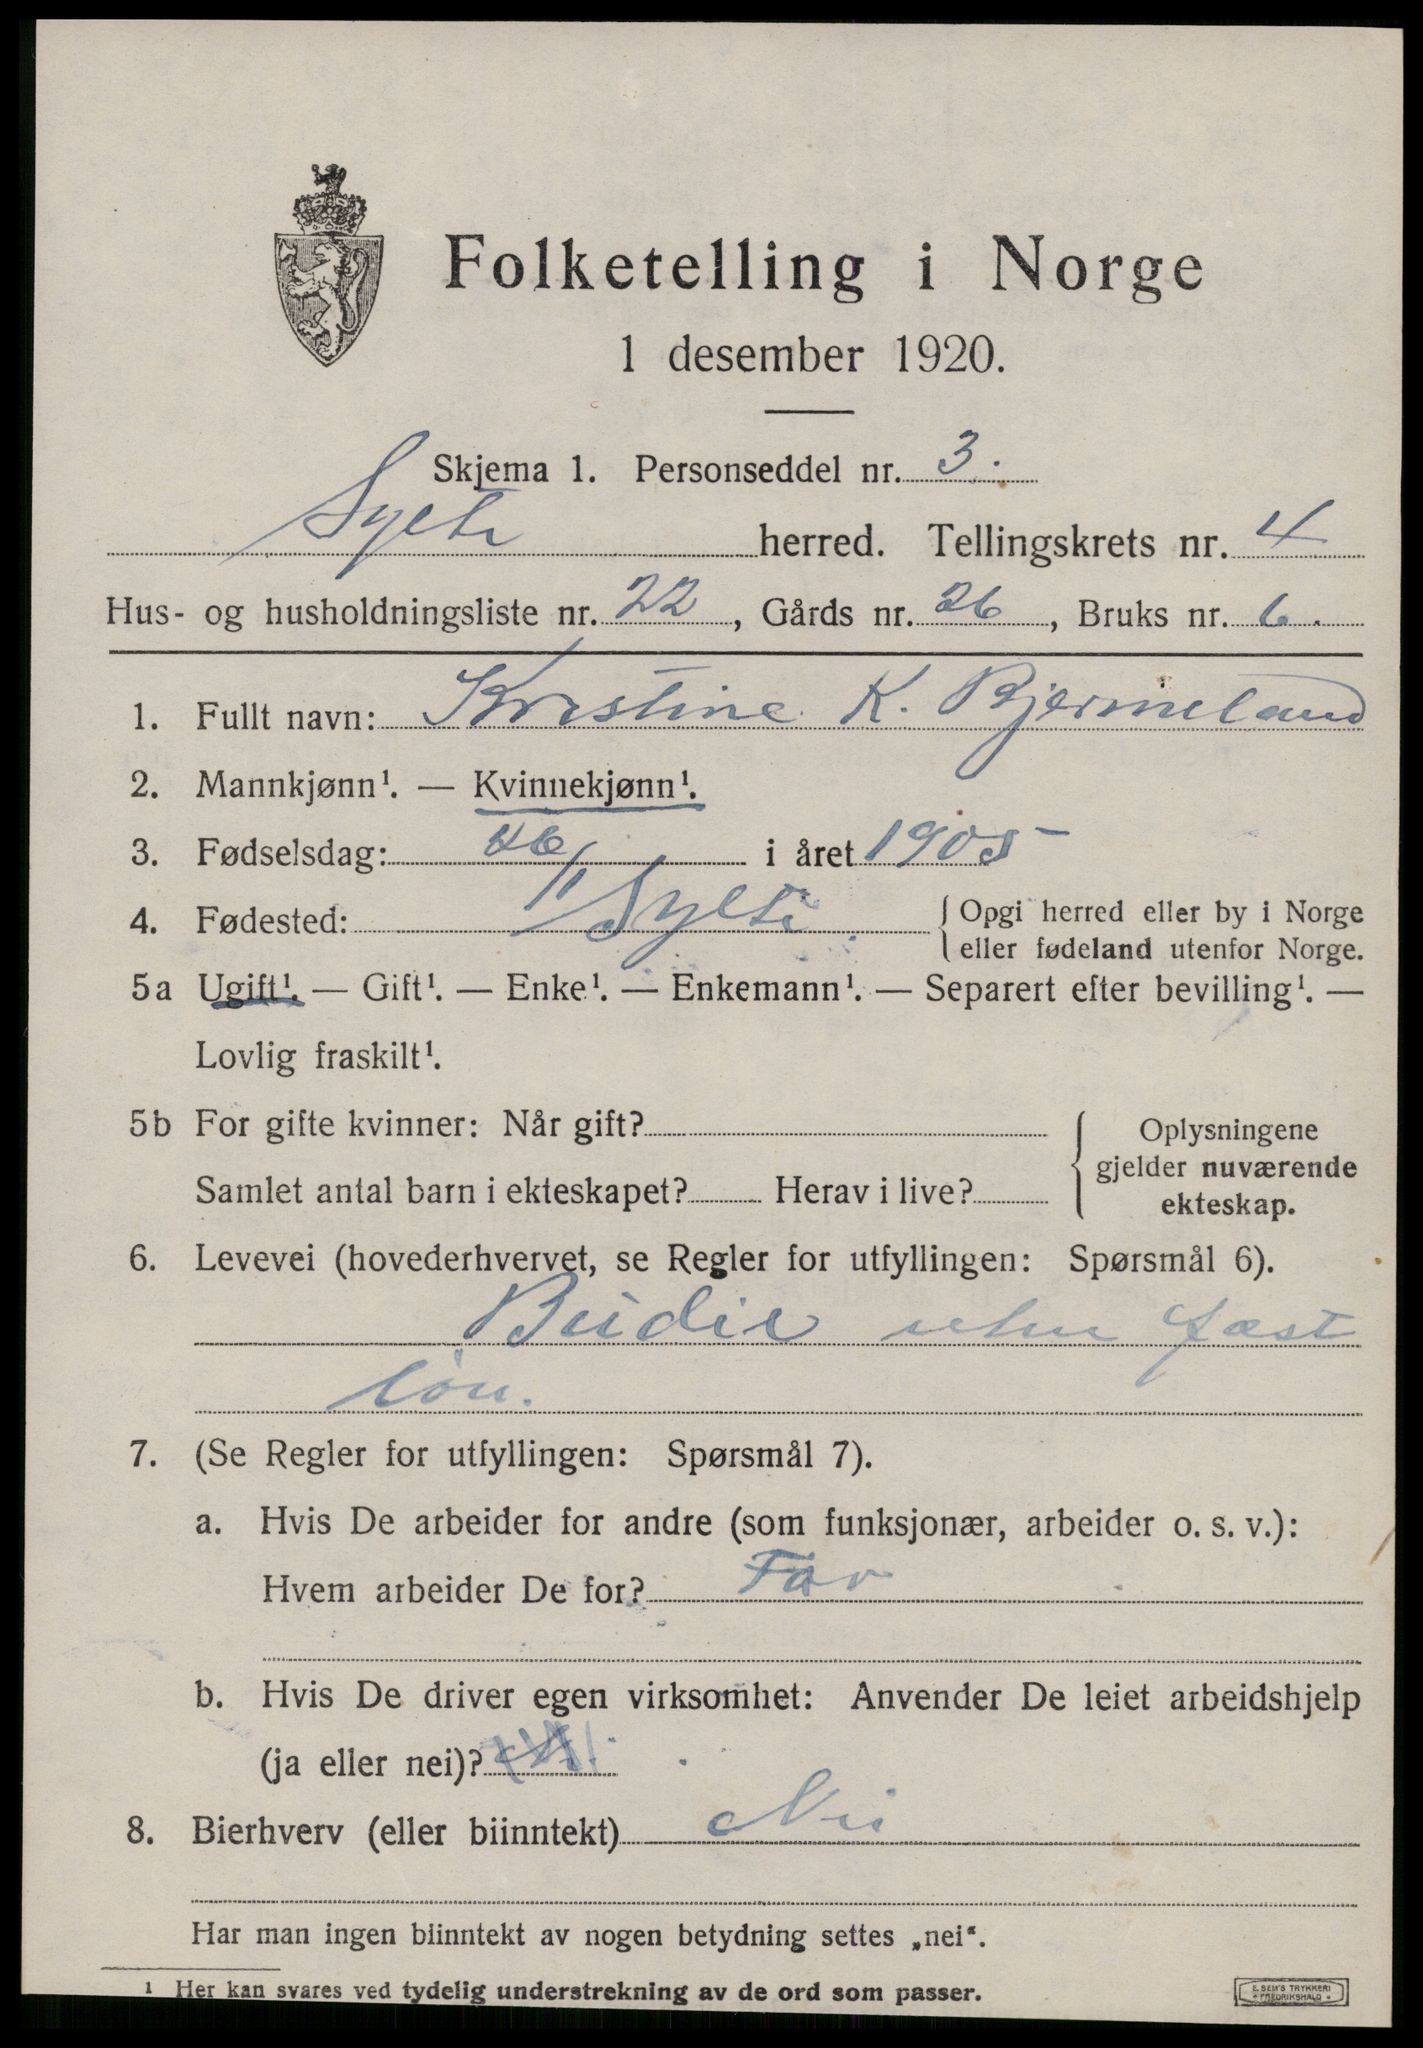 Folketelling i Norge
1 desember 1920.
Skjema 1. Personseddel nr. 3.
Sylte herred. Tellingskrets nr. 4
Hus- og husholdningsliste nr. 22, Gårds nr. 26, Bruks nr. 6.
1. Fullt navn: Kristine K. Bjermeland
2. Mannkjønn¹. — Kvinnekjønn¹.
3. Fødselsdag: /11 i året 1905
4. Fødested: Sylte. { Opgi herred eller by i Norge
eller fødeland utenfor Norge.
5a Ugift¹. — Gift¹. — Enke¹. — Enkemann¹. — Separert efter bevilling¹. —
Lovlig fraskilt¹.
5b For gifte kvinner: Når gift? { Oplysningene
gjelder nuværende
Samlet antal barn i ekteskapet? Herav i live?
ekteskap.
6. Levevei (hovederhvervet, se Regler for utfyllingen: Spørsmål 6).
Budeie uten fast
løn.
7. (Se Regler for utfyllingen: Spørsmål 7).
a. Hvis De arbeider for andre (som funksjonær, arbeider o. s. v.):
Hvem arbeider De for? Far
b. Hvis De driver egen virksomhet: Anvender De leiet arbeidshjelp
(ja eller nei)?
8. Bierhverv (eller biinntekt) Nei
Har man ingen biinntekt av nogen betydning settes „nei“.
¹ Her kan svares ved tydelig understrekning av de ord som passer.
E. SEM'S TRYKKERI
FREDRIKSHALD